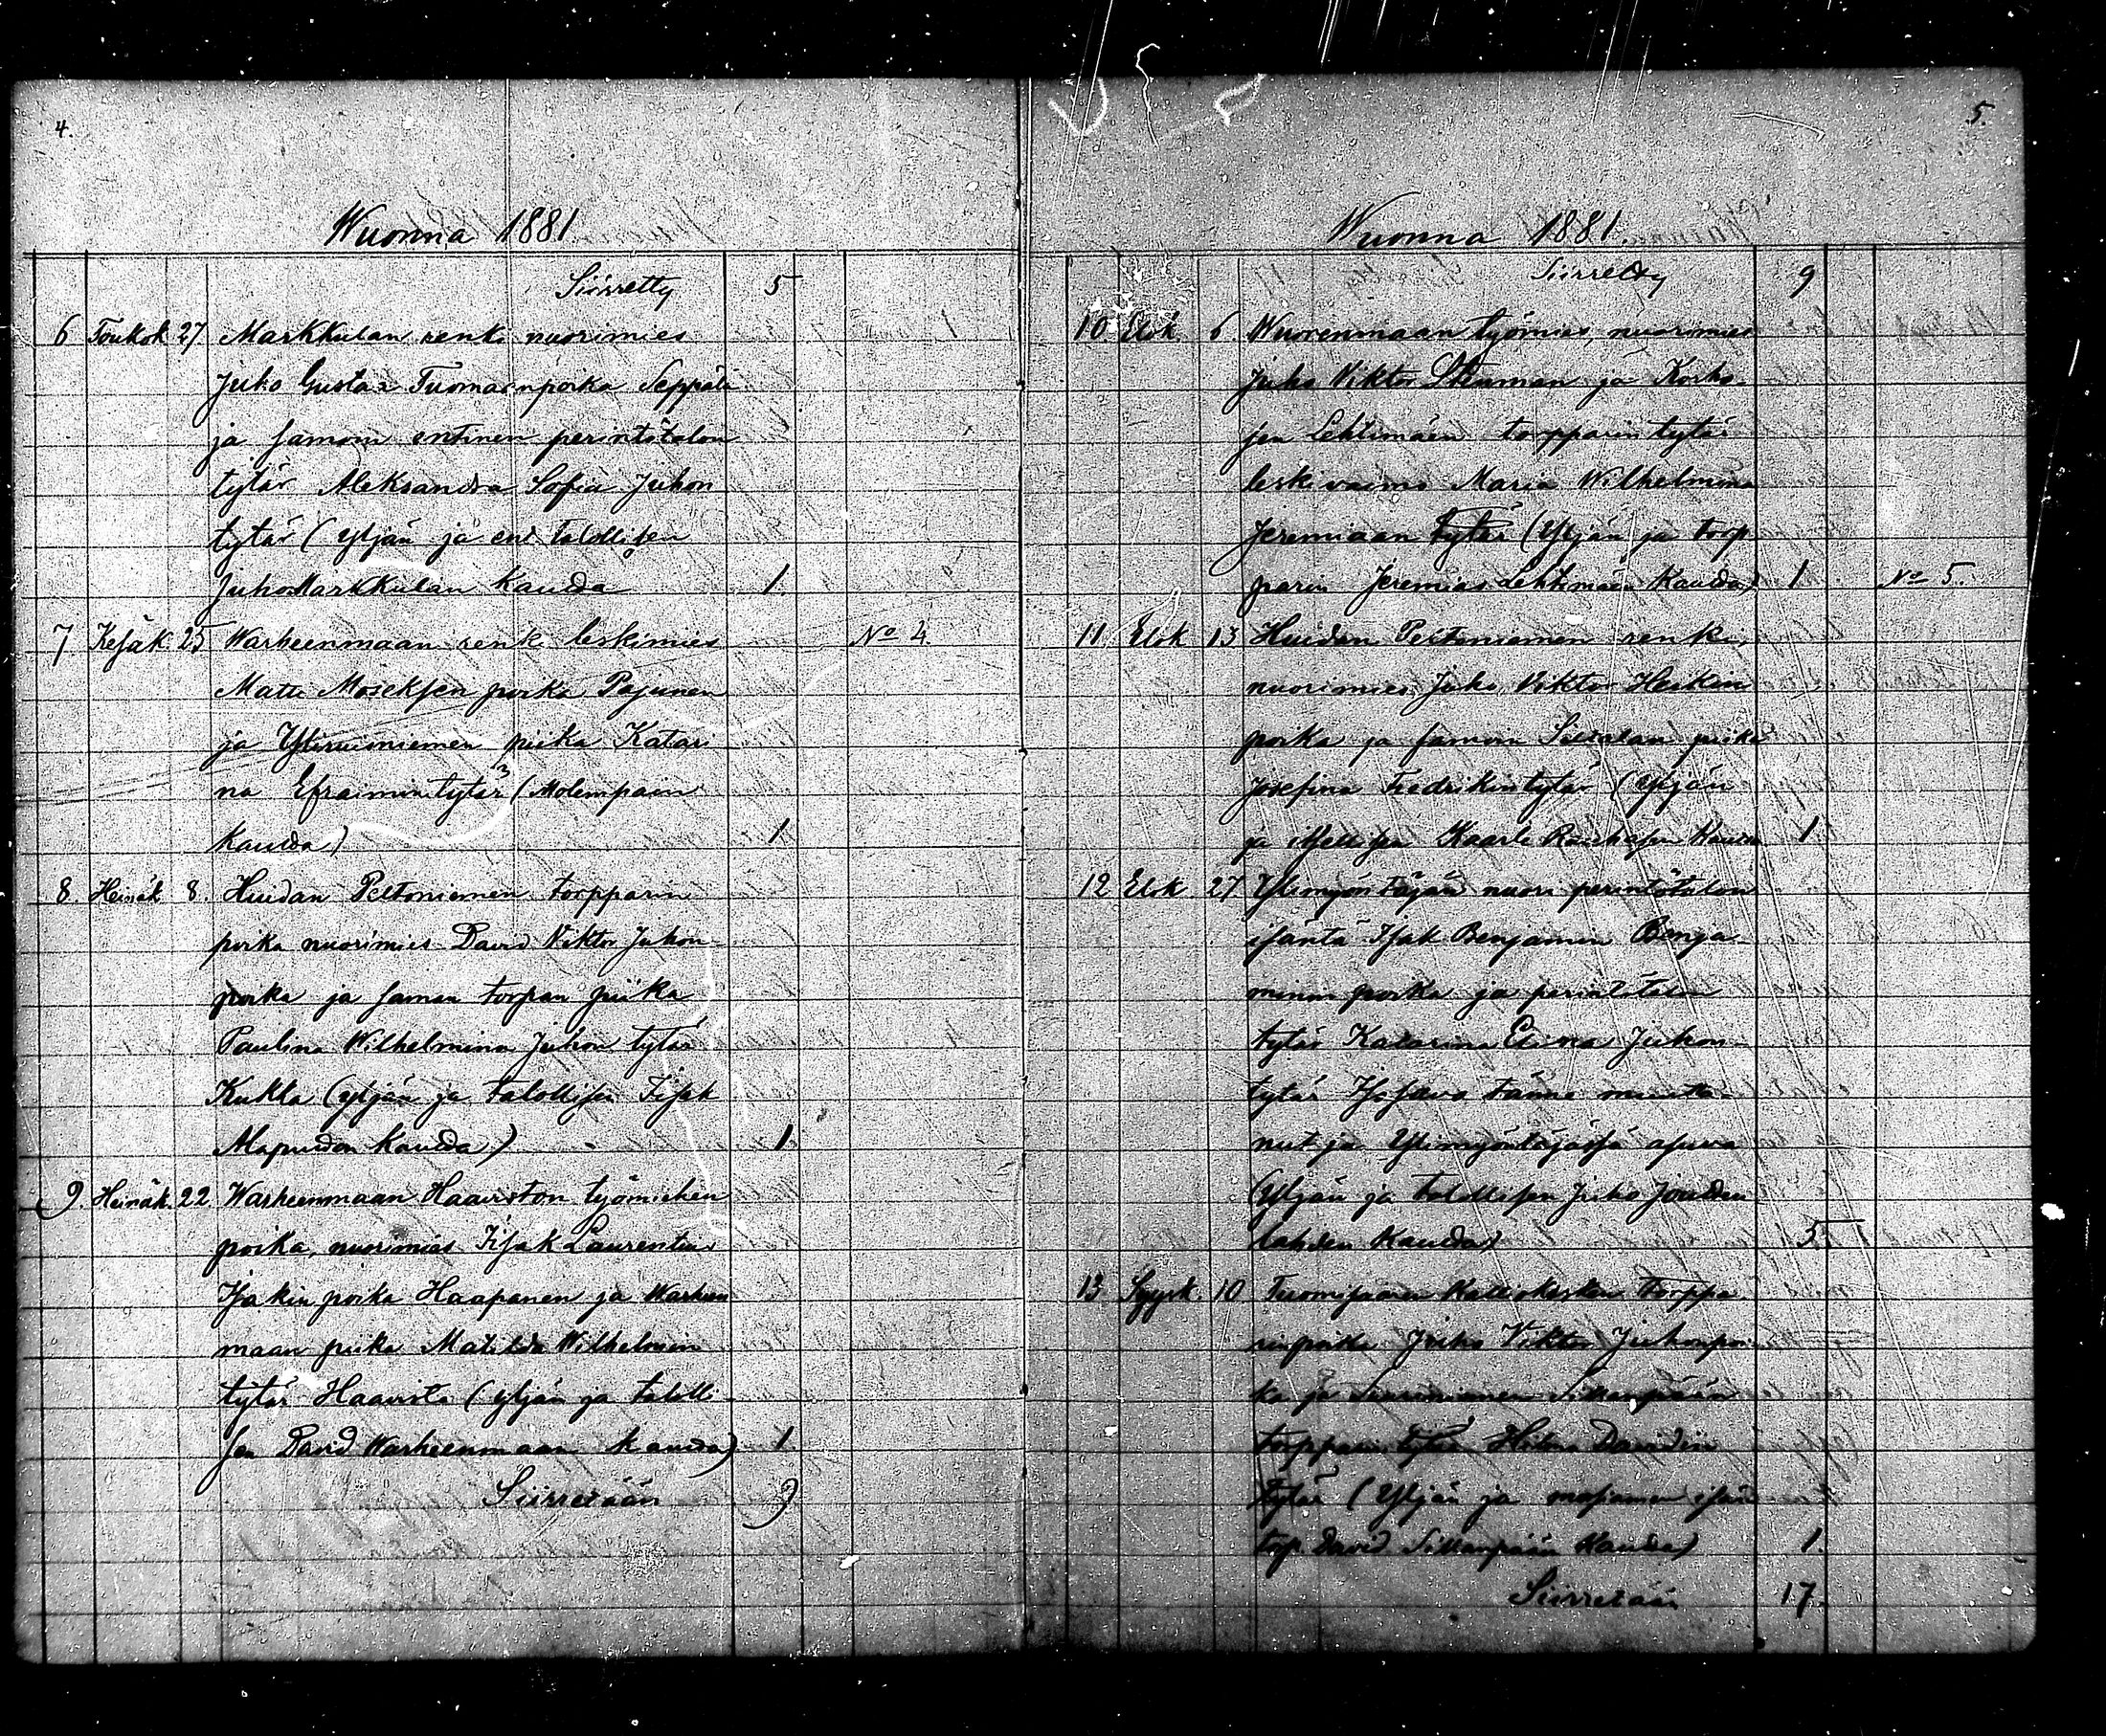 4.
Wuonna 1881
Siirretty 5
6 Toukok 27 Markkulan renki nuorimies
Juho Gustaa Tuomaanpoika Seppälä
ja samom entinen perintötalon
tytär Aleksandra Sofia Juhon
tytär (Yljän ja ent. talollisen
Juho Markkulan kautta 1.
7 Kesäk. 25 Warheenmaan renki leskimies No 4.
Matti Moseksen poika Pajunen
ja Yliruiniemen piika Katari
na Efraimin tytär (Molempain
kautta) 1
8. Heinäk 8. Huidan Peltoniemen torpparin
poika nuorimies David Viktor Juhon
poika ja saman torpan piika
Paulina Wilhelmina Juhon tytär
Kukla (yljän ja talollisen Iisak
kautta) 1
9. Heinäk. 22 Warheenmaan Haaviston työmiehen
poika, nuorimies Iisak Laurentius
Isakin poika Haapanen ja Warheen
maan piika Matilda Wilhelmin
tytär Haavisto (yljän ja talolli
sen David Warheenmaan kautta) 1
Siirretään 9
5.
Wuonna 1881.
Siirretty 9
10 Elok. 6. Wuorenmaan työmies, nuorimies
Juho Viktor Stenman ja Korho-
jen Lehtimäen torpparin tytär
leskivaimo Maria Wilhelmina
Jeremiaan tytär (Yljän ja torp
parin Jeremias Lehtimäen kautta) 1 No 5.
11 Elok 13 Huidan Peltoniemen renki,
nuorimies Juho Viktor Heikin
poika ja samom piika
Josefina Fredrikintytär (Yljän
ja Kaarle kautta 1
12 Elok 27 Ylimyöntäjän nuori perintötalon
isäntä Isak Benjamin Benja-
minin poika ja perintötalon
tytär Katarina Juhon-
tytär tänne muutta-
nut ja Ylimyöntäjässä asuva
(Yljän ja talollisen Juho Jouden
lahden kautta) 5.
13 Syysk. 10 Kalliokosken torppa
rinpoika Juho Viktor Juhonpoi-
ka ja Sillanpään
torpparin tytär Davidin
tytär (Yljän ja morsiamen isän
torp. David Sillanpään kautta) 1.
Siirretään 17.